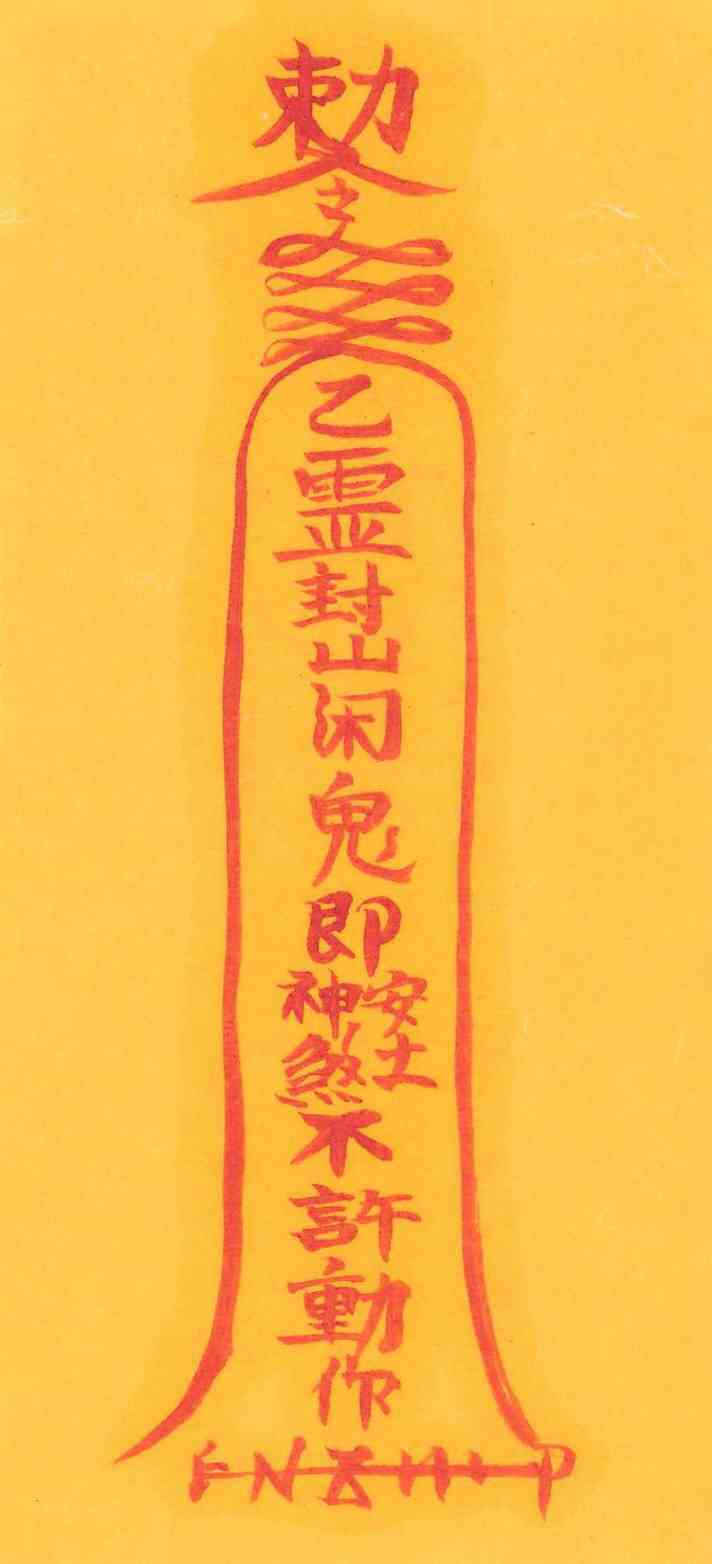 勅令
乙霊封山闲鬼即
安土
神煞
不許動作